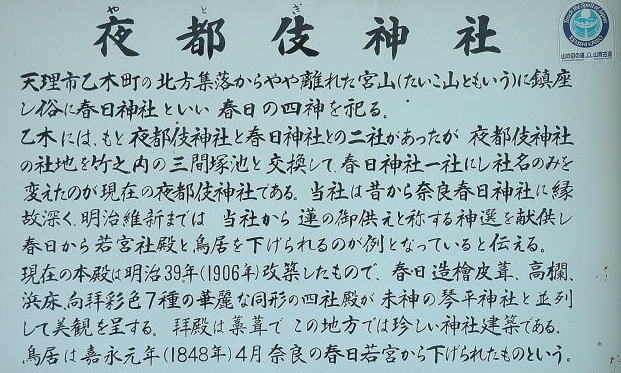 やとぎ
夜都伎神社
天理市乙木町の北方集落からやや離れた宮山(たいこ山ともいう)に鎮座
し俗に春日神社といい春日の四神を祀る。
乙木には、もと夜都伎神社と春日神社との二社があったが 夜都伎神社
の社地を竹之内の三間塚池と交換して、春日神社一社にし社名のみを
変えたのが現在の夜都伎神社である。当社は昔から奈良春日神社に縁
故深く、明治維新までは 当社から蓮の御供えと称する神選を献供し
春日から若宮社殿と鳥居を下げられるのが例となっていると伝える。
現在の本殿は明治39年(1906年)改築したもので、春日造檜皮葺、高欄、
浜床、向拝彩色7種の華麗な同形の四社殿が末神の琴平神社と並列
して美観を呈する。拝殿は藁葺でこの地方では珍しい神社建築である。
鳥居は嘉永元年(1848年)4月奈良の春日若宮から下げられたものという。